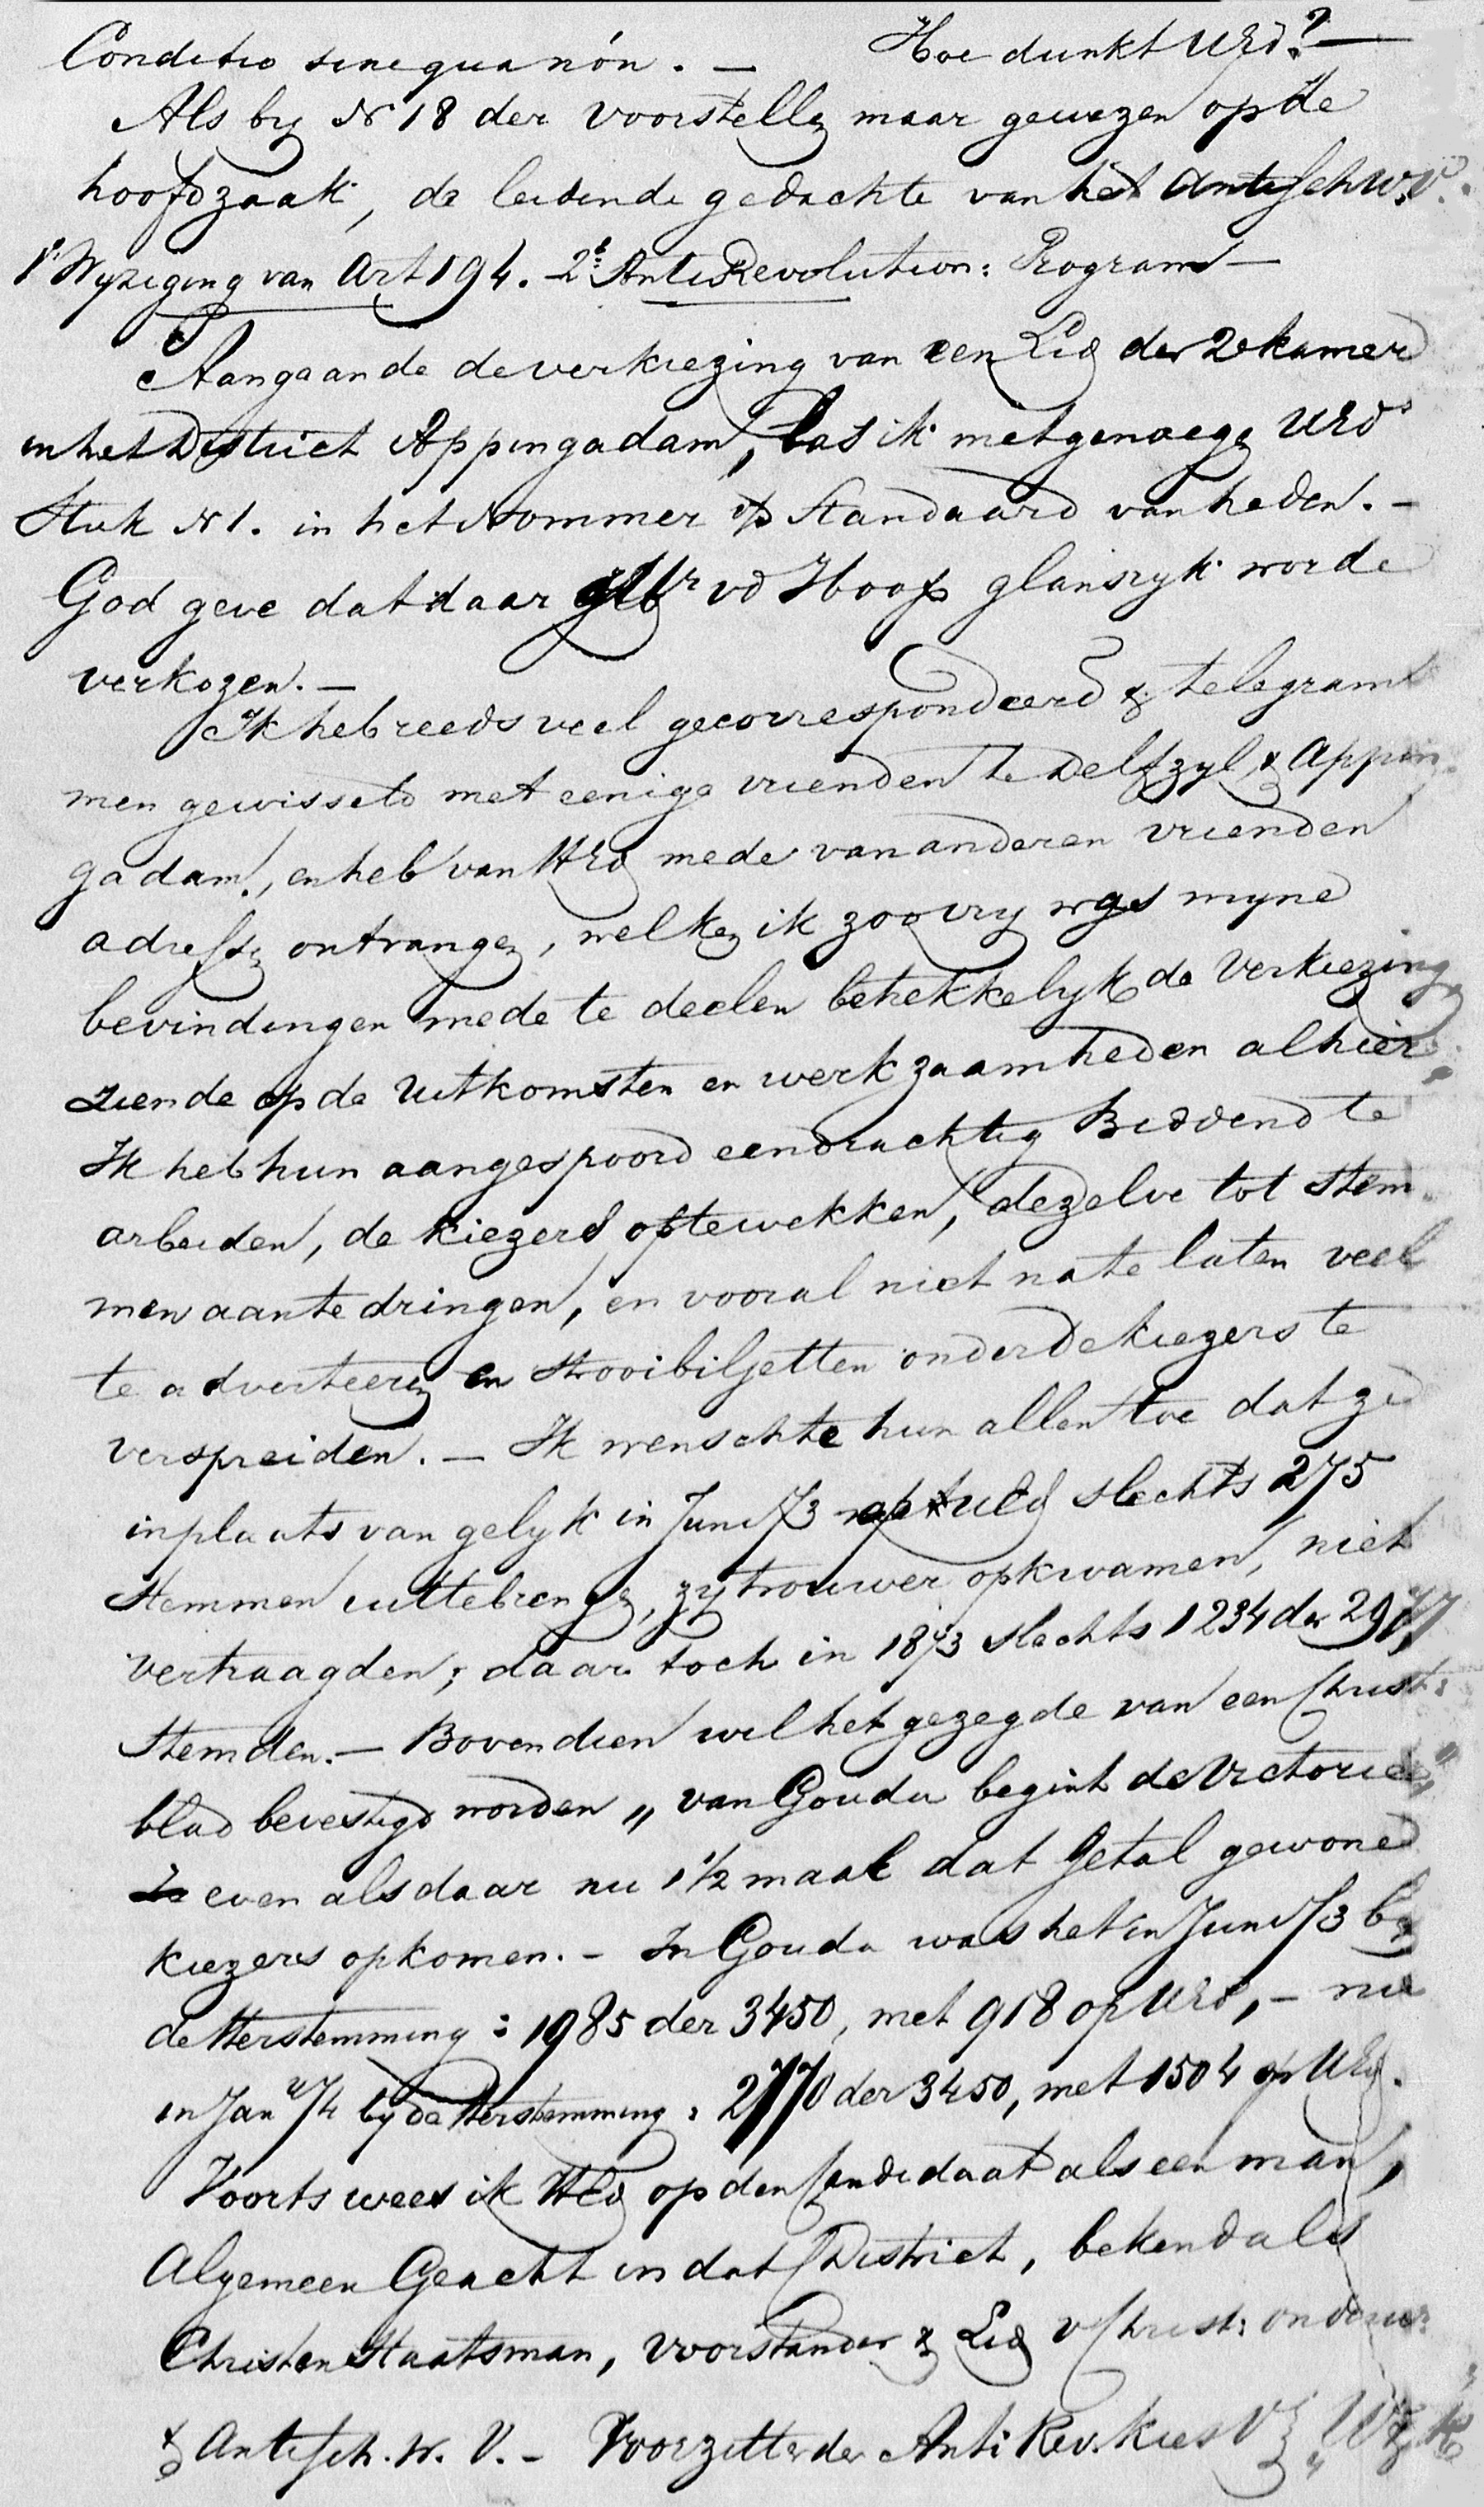 Conditio sine qua nón. — Hoe dunkt UEd? —
Als by N 18 der voorstelln maar gewezen op de
hoofdzaak, de leidende gedachte van het AntiSchW.V.
1° Wyziging van Art 194. — 2e AntiRevolution: Program —
Aangaande de verkiezing van een Lid der 2e kamer
in het District Appingadam, las ik met genoegn UEds
Stuk N 1. in het Nommer d/ Standaard van heden. —
God geve dat daar vd Hoop glansryk worde
verkozen. —
Ik heb reeds veel gecorrespondeerd & telegram
men gewisseld met eenige vrienden te Delfzyl & Appin
gadam, en heb van HEd mede van anderen vrienden
adressn ontvangen, welken ik zoo vry was myne
bevindingen mede te deelen betrekkelyk de verkiezing
ziende op de uitkomsten en werkzaamheden alhier
Ik heb hun aangespoord eendrachtig Biddend te
arbeiden, de kiezers optewekken, dezelve tot stem
men aan te dringen, en vooral niet na te laten veel
te adverteeren en Strooibiljetten onder de kiezers te
verspreiden. — Ik wenschte hun allen toe dat ze
in plaats van gelyk in Juni 73 op UEd slechts 275
stemmen uittebrengn, zy trouwer opkwamen, niet
vertraagden; daar toch in 1873 slechts 1234 der 2977
stemden. — Bovendien wil het gezegde van een Christ:
blad bevestigd worden „van Gouda begint de Victorie"
even als daar nu 1½ maal dat getal gewone
kiezers opkomen. — In Gouda was het in Juni 73 by
de Herstemming : 1985 der 3450, met 918 op UEd, — nu
in Jan 74 by de Herstemming : 2770 der 3450, met 1504 op UEd.
Voorts wees ik HEd op den Candidaat als een man,
Algemeen Geacht in dat District, bekend als
Christen Staatsman, voorstander & Lid v Christ: onderw:
& AntiSch. W. V. — Voorzitter der Anti Rev. Kies V